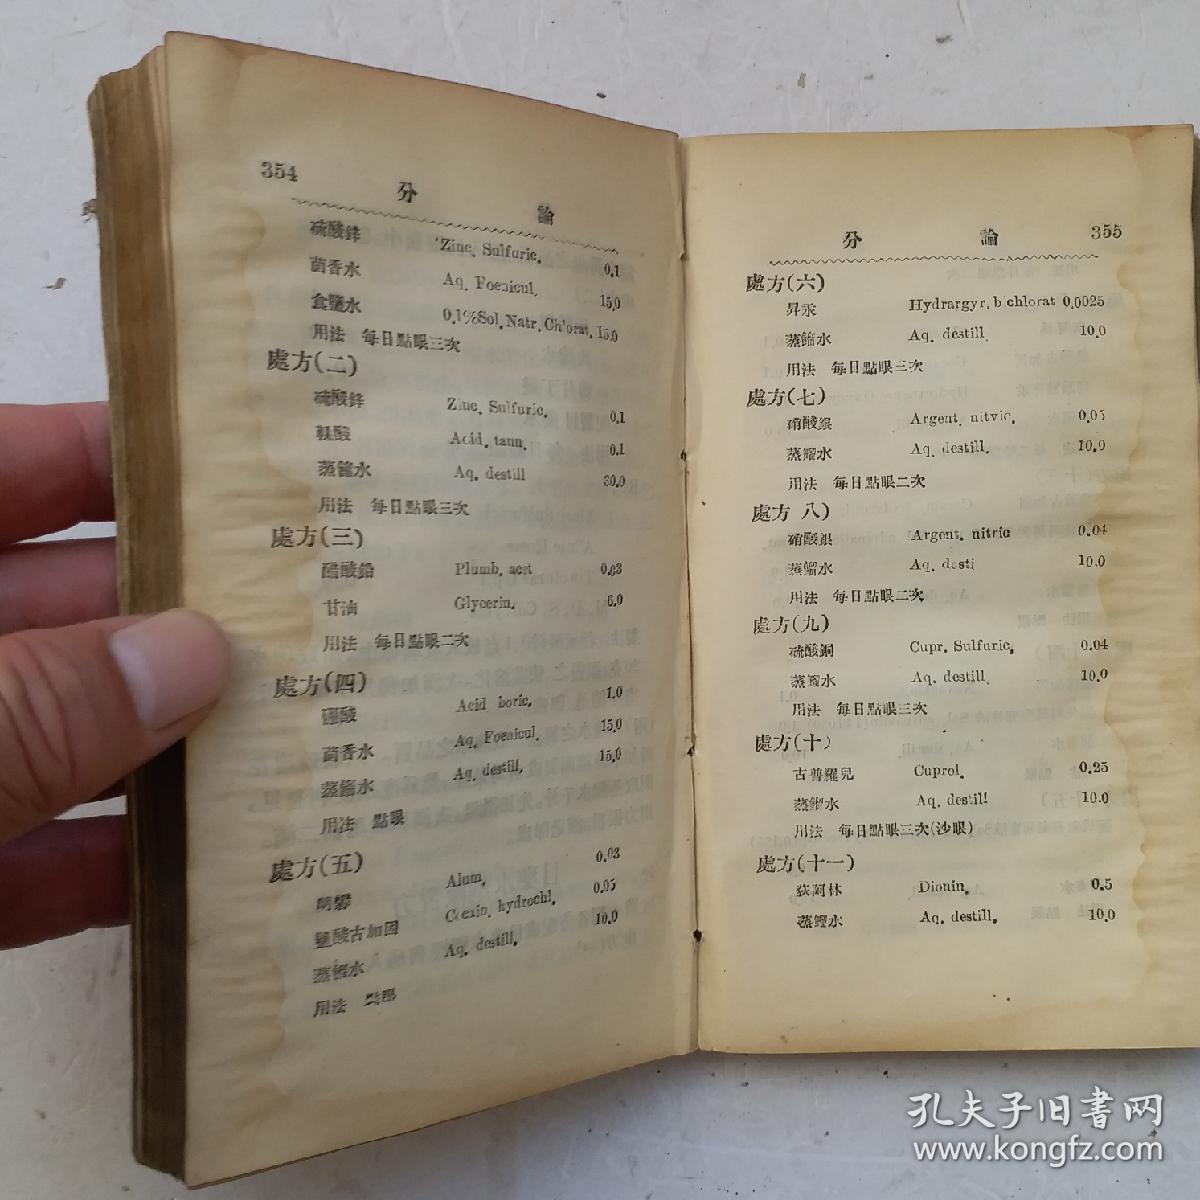 354
分 論
硫酸鋅 Zinc. Sulfuric. 0.1
茴香水 Aq. Foenicul. 15.0
食鹽水 0.1%Sol. Natr. Chlorat. 15.0
用法 每日點眼三次
處方(二)
硫酸鋅 Zinc. Sulfuric. 0.1
鞣酸 Acid. tann. 0.1
蒸餾水 Aq. destill 30.0
用法 每日點眼三次
處方(三)
醋酸鉛 Plumb. acet 0.03
甘油 Glycerin. 6.0
用法 每日點眼二次
處方(四)
硼酸 Acid boric. 1.0
茴香水 Aq. Foenicul. 15.0
蒸餾水 Aq. destill. 15.0
用法 點眼
處方(五)
明礬 Alum. 0.03
鹽酸古加因 Cocain. hydrochl. 0.05
蒸餾水 Aq. destill. 10.0
用法 點眼
分 論 355
處方(六)
昇汞 Hydrargyr. bichlorat 0.0025
蒸餾水 Aq. destill. 10.0
用法 每日點眼三次
處方(七)
硝酸銀 Argent. nitvic. 0.05
蒸餾水 Aq. destill. 10.0
用法 每日點眼二次
處方 八)
硝酸銀 Argent. nitric 0.04
蒸餾水 Aq. desti 10.0
用法 每日點眼二次
處方(九)
硫酸銅 Cupr. Sulfuric. 0.04
蒸餾水 Aq. destill. 10.0
用法 每日點眼三次
處方(十)
古普羅兒 Cuprol. 0.25
蒸餾水 Aq. destill 10.0
用法 每日點眼三次(沙眼)
處方(十一)
狄阿林 Dionin. 0.5
蒸餾水 Aq. destill. 10.0
孔夫子旧书网
www.kongfz.com